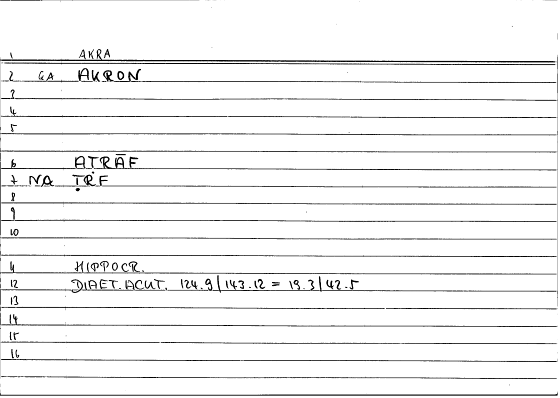 1 AKRA
2 GA AKRON
3
4
5
6 AṬRĀF
7 NA ṬRF
8
9
10
11 HIPPOCR.
12 DIAET. ACUT. 124.9 | 143.12 = 19.3 | 42.5
13
14
15
16